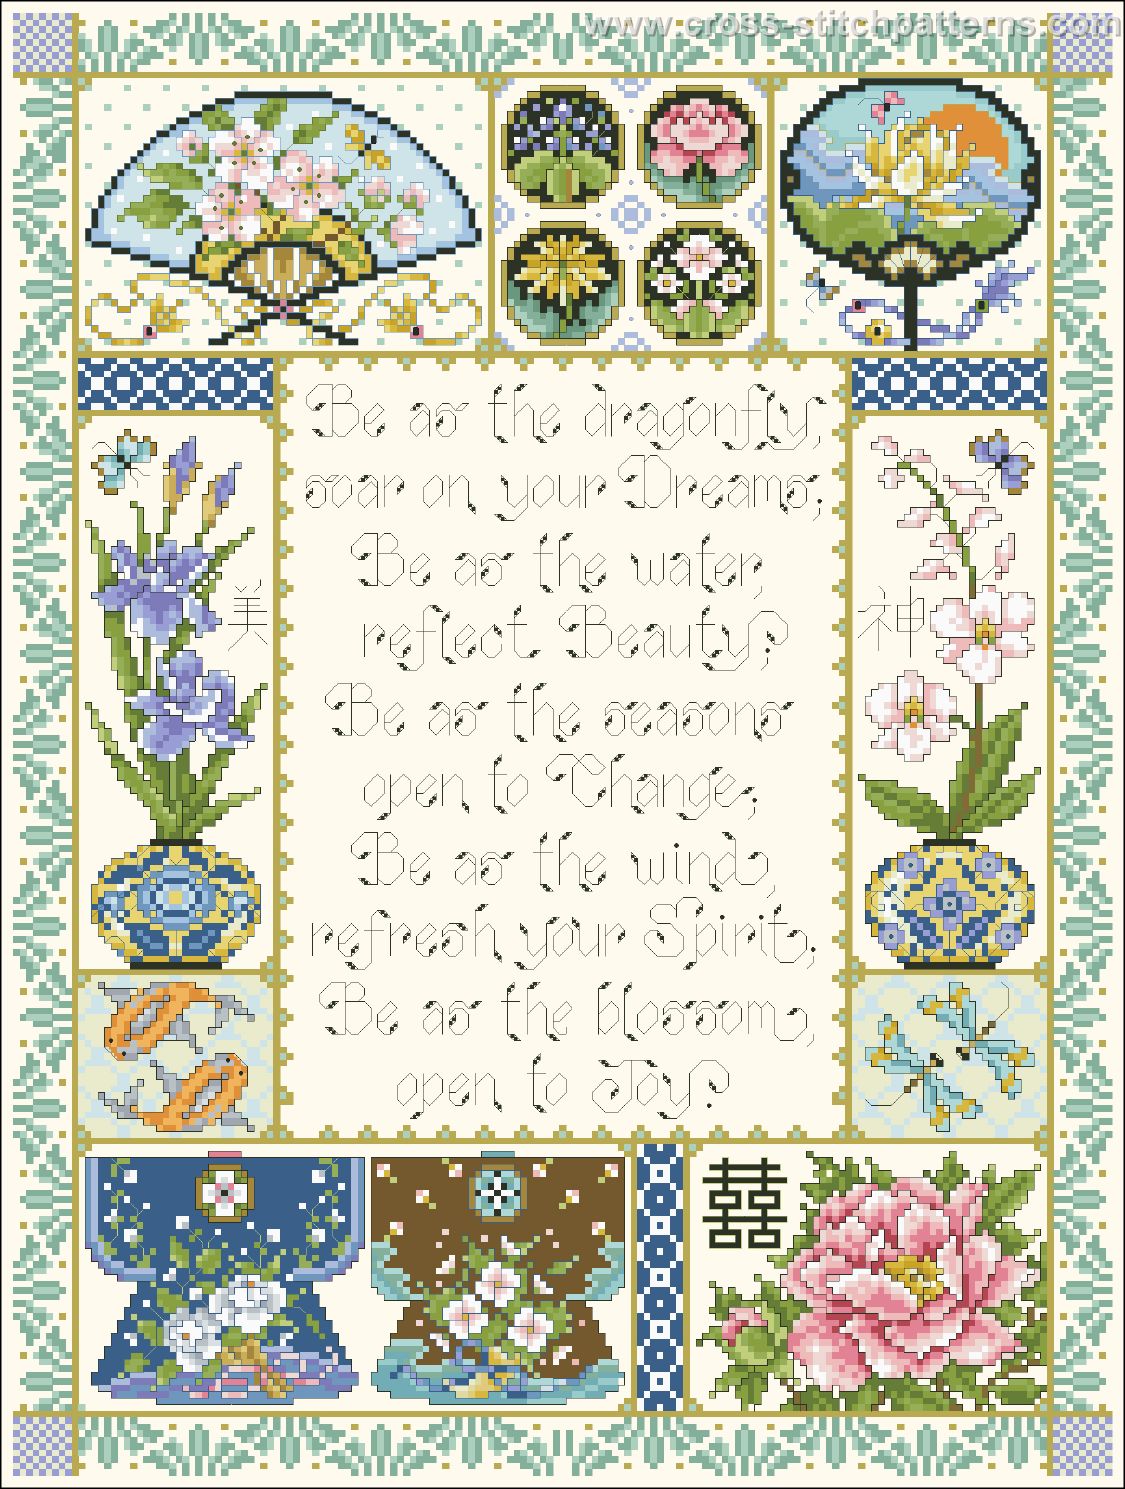 www.cross-stitchpatterns.com
Be as the dragonfly,
soar on your Dreams;
Be as the water,
reflect Beauty;
美
神
Be as the seasons
open to Change;
Be as the wind,
refresh your Spirit;
Be as the blossom,
open to Joy.
囍